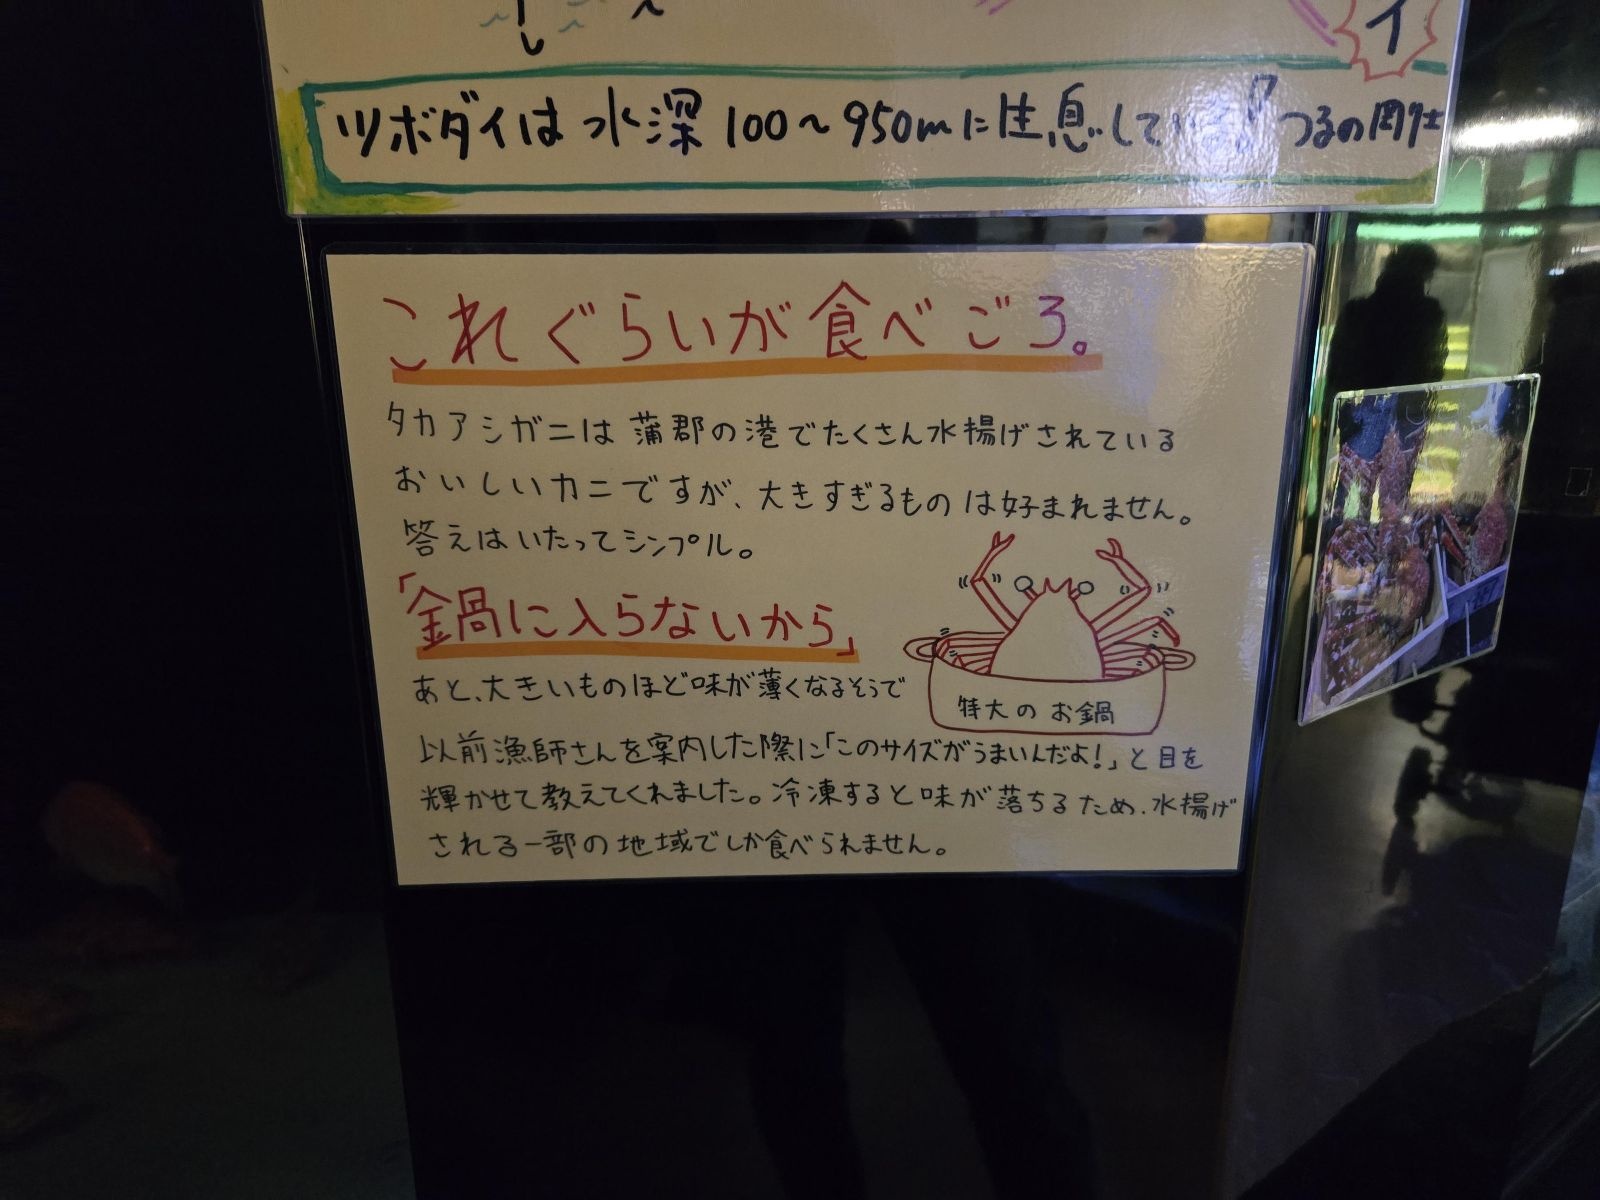 イ
ツボダイは水深100～950mに生息して
これぐらいが食べごろ。
タカアシガニは蒲郡の港でたくさん水揚げされている
おいしいカニですが、大きすぎるものは好まれません。
答えはいたってシンプル。
「金鍋に入らないから」
あと、大きいものほど味が薄くなるそうで
特大のお鍋
以前漁師さんを案内した際に「このサイズがうまいんだよ!」と目を
輝かせて教えてくれました。冷凍すると味が落ちるため、水揚げ
される一部の地域でしか食べられません。